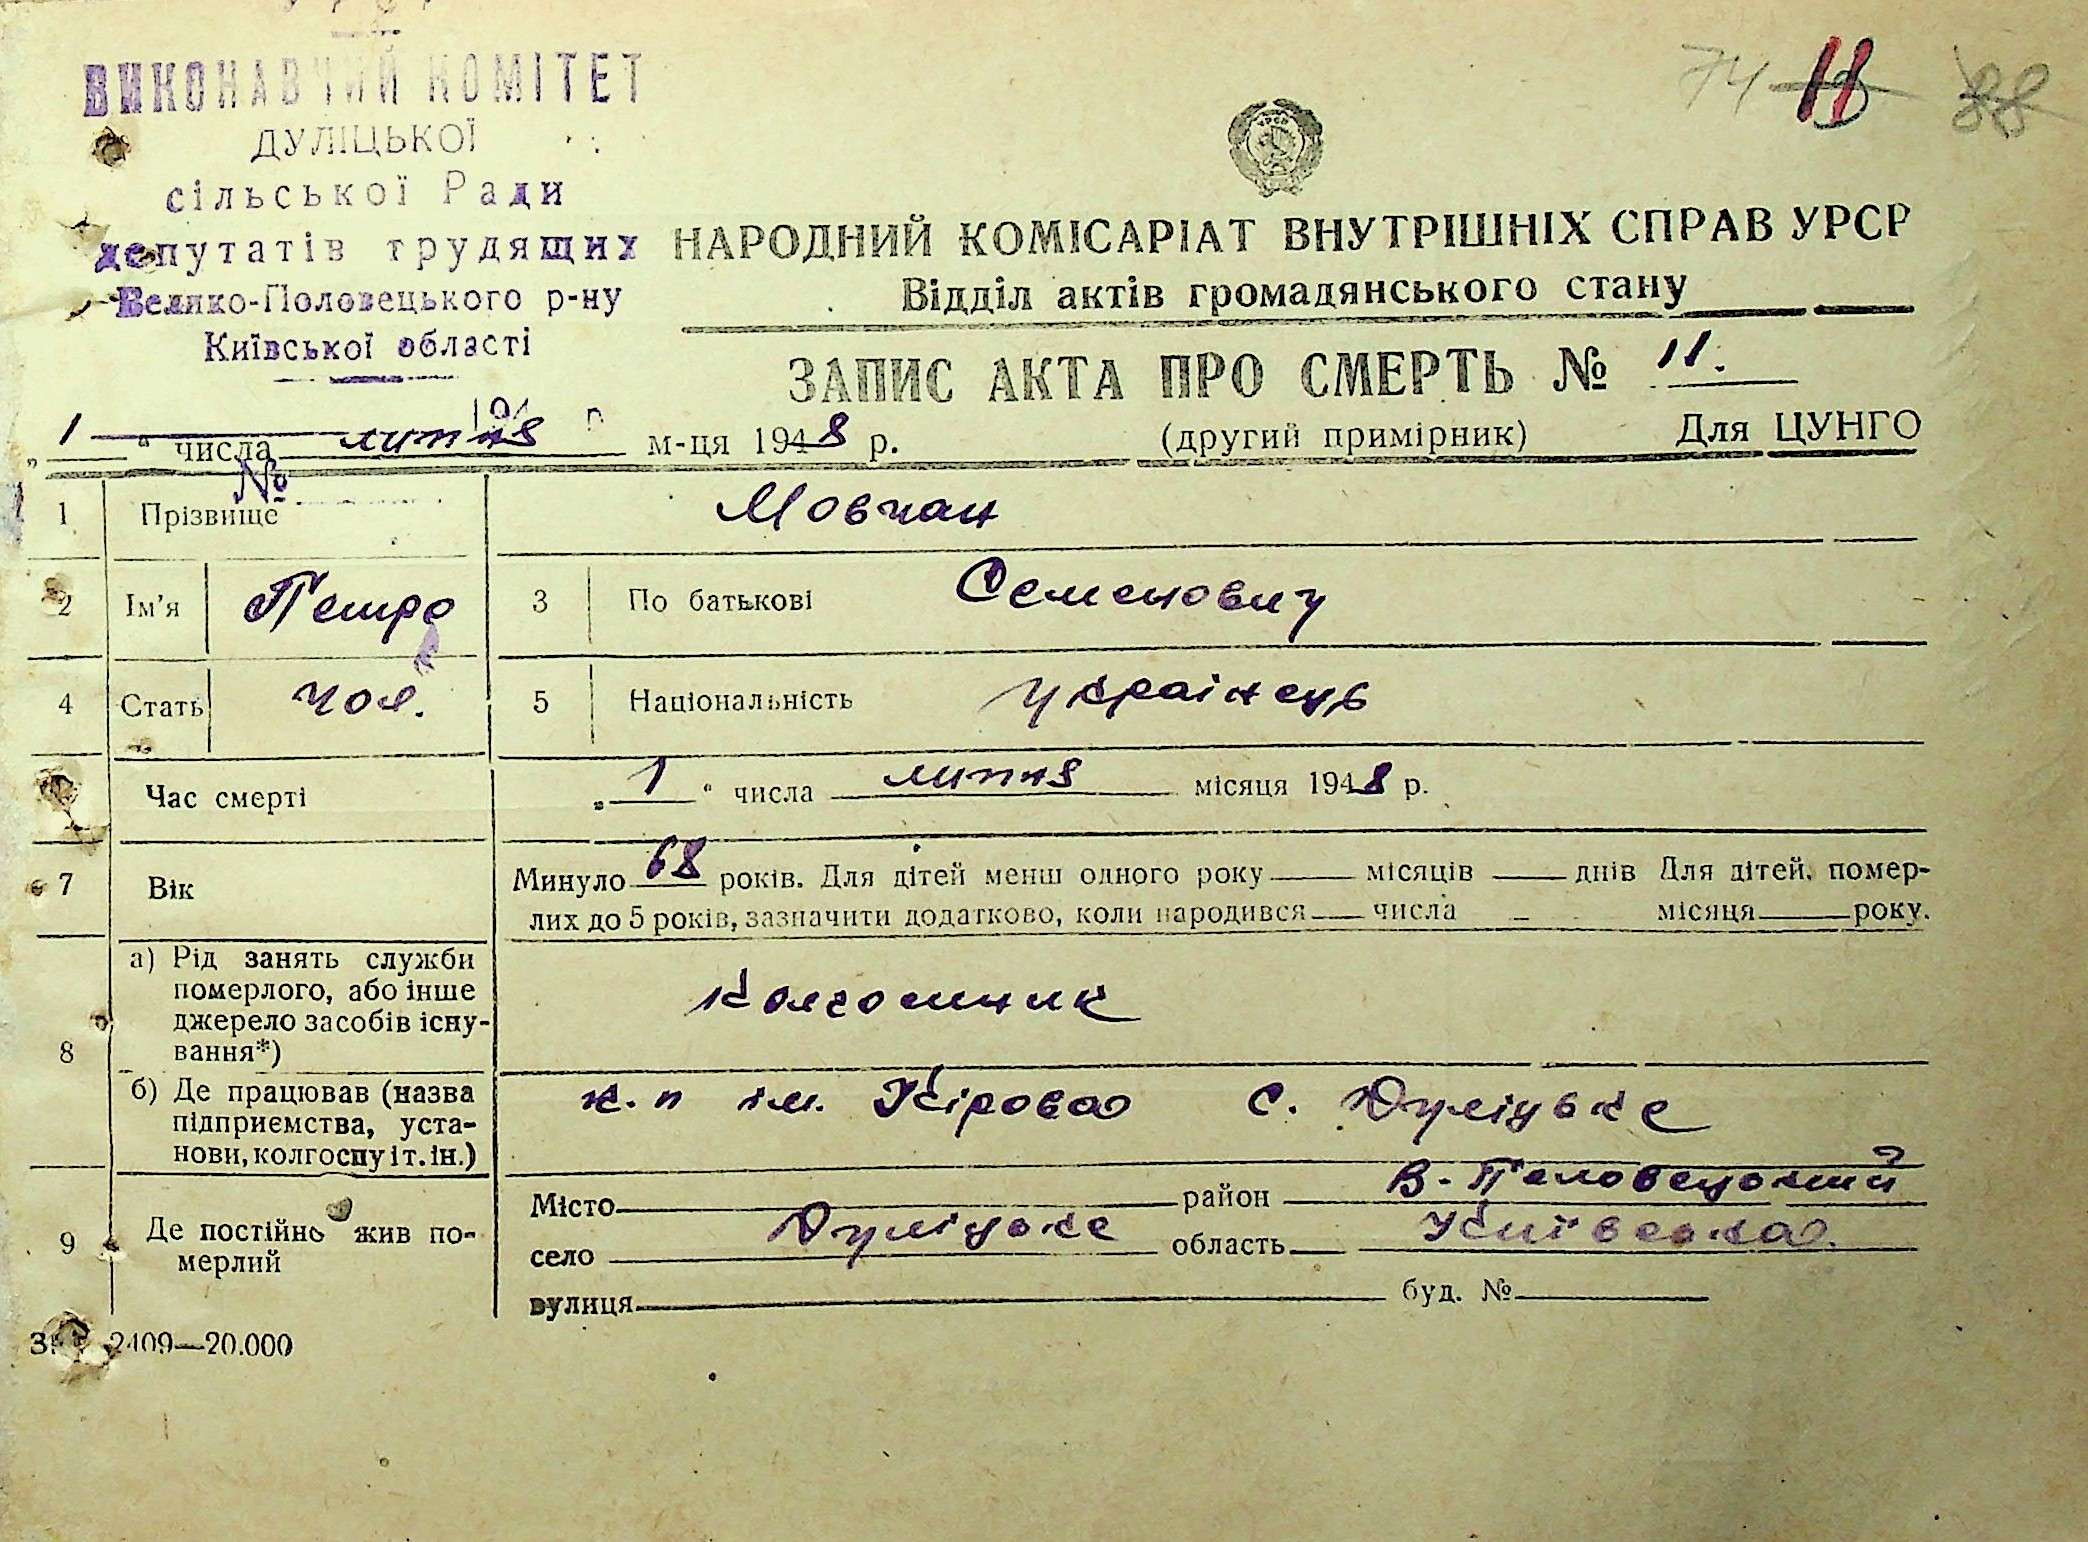 УРСР
ВИКОНАВЧИЙ КОМІТЕТ
ДУЛІЦЬКОЇ
сільської Ради
депутатів трудящих
Велико-Половецького р-ну
Київської області
194 р.
№
74 11 88
УРСР
НАРОДНИЙ КОМІСАРІАТ ВНУТРІШНІХ СПРАВ УРСР
Відділ актів громадянського стану
ЗАПИС АКТА ПРО СМЕРТЬ № 11.
„1“ числа липня м-ця 1948 р. (другий примірник) Для ЦУНГО
1 Прізвище Мовчан
2 Ім'я Петро 3 По батькові Семенович
4 Стать чол. 5 Національність українець
Час смерті „1“ числа липня місяця 1948 р.
7 Вік Минуло 68 років. Для дітей менш одного року — місяців — днів Для дітей, помер-
лих до 5 років, зазначити додатково, коли народився — числа — місяця — року.
8 а) Рід занять служби
померлого, або інше
джерело засобів існу-
вання*) Колгоспник
б) Де працював (назва
підприємства, уста-
нови, колгоспу і т. ін.) к-п ім. Кірова с. Дуліцьке
9 Де постійно жив по-
мерлий
Місто район В-Половецький
село Дуліцьке область Київська.
вулиця буд. №
2409—20.000